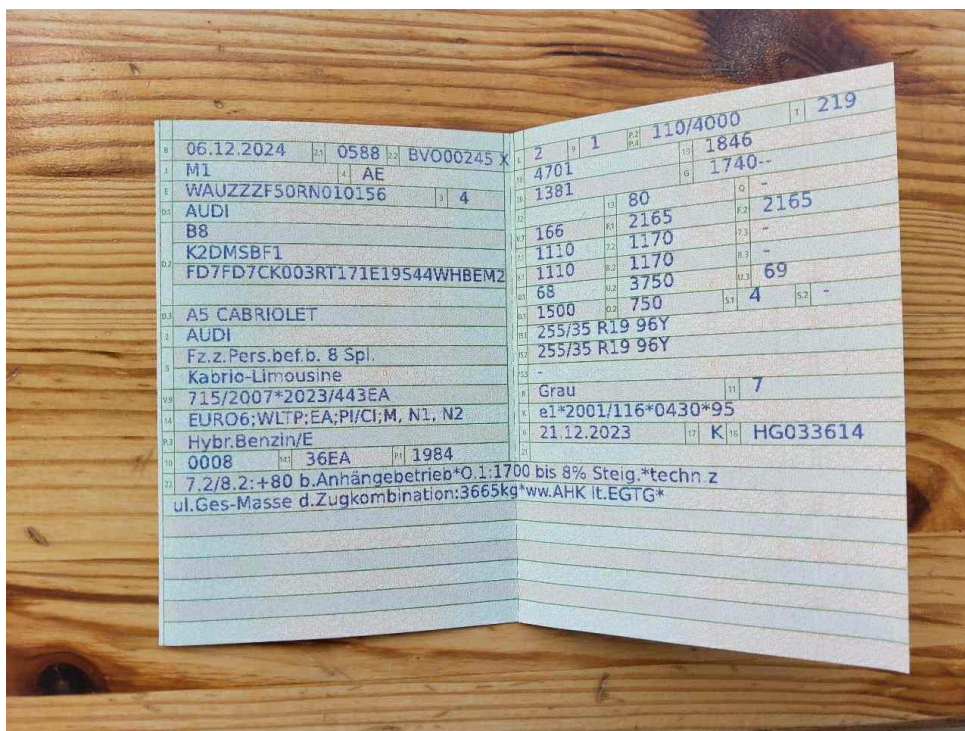 B 06.12.2024 2.1 0588 2.2 BVO00245 X
J M1 4 AE
E WAUZZZF50RN010156 3 4
D.1 AUDI
B8
D.2 K2DMSBF1
FD7FD7CK003RT171E19S44WHBEM2
D.3 A5 CABRIOLET
2 AUDI
5 Fz.z.Pers.bef.b. 8 Spl.
Kabrio-Limousine
V.9 715/2007*2023/443EA
14 EURO6;WLTP;EA;PI/CI;M, N1, N2
P.3 Hybr.Benzin/E
10 0008 14.1 36EA P.1 1984
22 7.2/8.2:+80 b.Anhängebetrieb*O.1:1700 bis 8% Steig.*techn.z
ul.Ges-Masse d.Zugkombination:3665kg*ww.AHK lt.EGTG*
L 2 9 1 P.2 P.4 110/4000 T 219
18 4701 19 1846
20 1381 G 1740--
12 13 80 Q -
V.7 166 F.1 2165 F.2 2165
7.1 1110 7.2 1170 7.3 -
8.1 1110 8.2 1170 8.3 -
U.1 68 U.2 3750 U.3 69
O.1 1500 O.2 750 S.1 4 S.2 -
15.1 255/35 R19 96Y
15.2 255/35 R19 96Y
15.3 -
R Grau 11 7
K e1*2001/116*0430*95
6 21.12.2023 17 K 16 HG033614
21